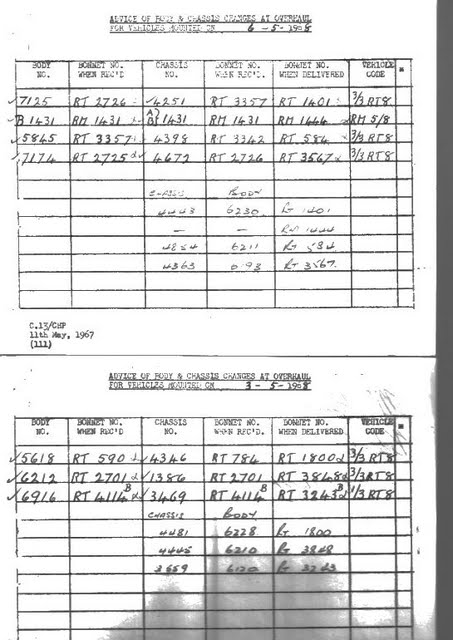 ADVICE OF BODY & CHASSIS CHANGES AT OVERHAUL
FOR VEHICLES MOUNTED ON 6 - 5 - 1968
BODY NO. BONNET NO. WHEN REC'D CHASSIS NO. BONNET NO. WHEN REC'D BONNET NO. WHEN DELIVERED VEHICLE CODE
✓7125 RT 2726 ✓4251 RT 3357 RT 1401 3/3 RT8
B 1431 RM 1431 B 1431 RM 1431 RM 1444 RM 5/8
✓5845 RT 3357 ✓4398 RT 3342 RT 584 3/3 RT8
✓7174 RT 2725 ✓4672 RT 2726 RT 3567 3/3 RT8
CHASSIS BODY
4443 6230 RT 1401
— — RM 1444
4854 6211 RT 584
4363 RT 3567
C.13/CMP
11th May, 1967
(111)
ADVICE OF BODY & CHASSIS CHANGES AT OVERHAUL
FOR VEHICLES MOUNTED ON 3 - 5 - 1968
BODY NO. BONNET NO. WHEN REC'D CHASSIS NO. BONNET NO. WHEN REC'D BONNET NO. WHEN DELIVERED VEHICLE CODE
✓5618 RT 590 ✓4346 RT 784 RT 1800 3/3 RT8
✓6212 RT 2701 ✓1386 RT 2701 RT 3848 3/3 RT8
✓6916 RT 4114 B ✓3469 RT 4114 B RT 3243 B 1/3 RT8
CHASSIS BODY
4481 6228 RT 1800
4445 6210 RT 3848
3659 6120 RT 3243